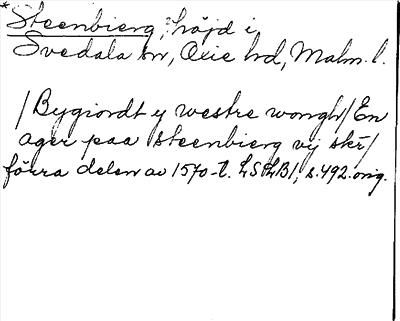 *Steenbierg, höjd i
Svedala sn, Oxie hd, Malm. l.
/Bygiordt y westre wongh/En
ager paa steenbierg vij skr/
förra delen av 1570-t. LSLB1, s. 492. orig.